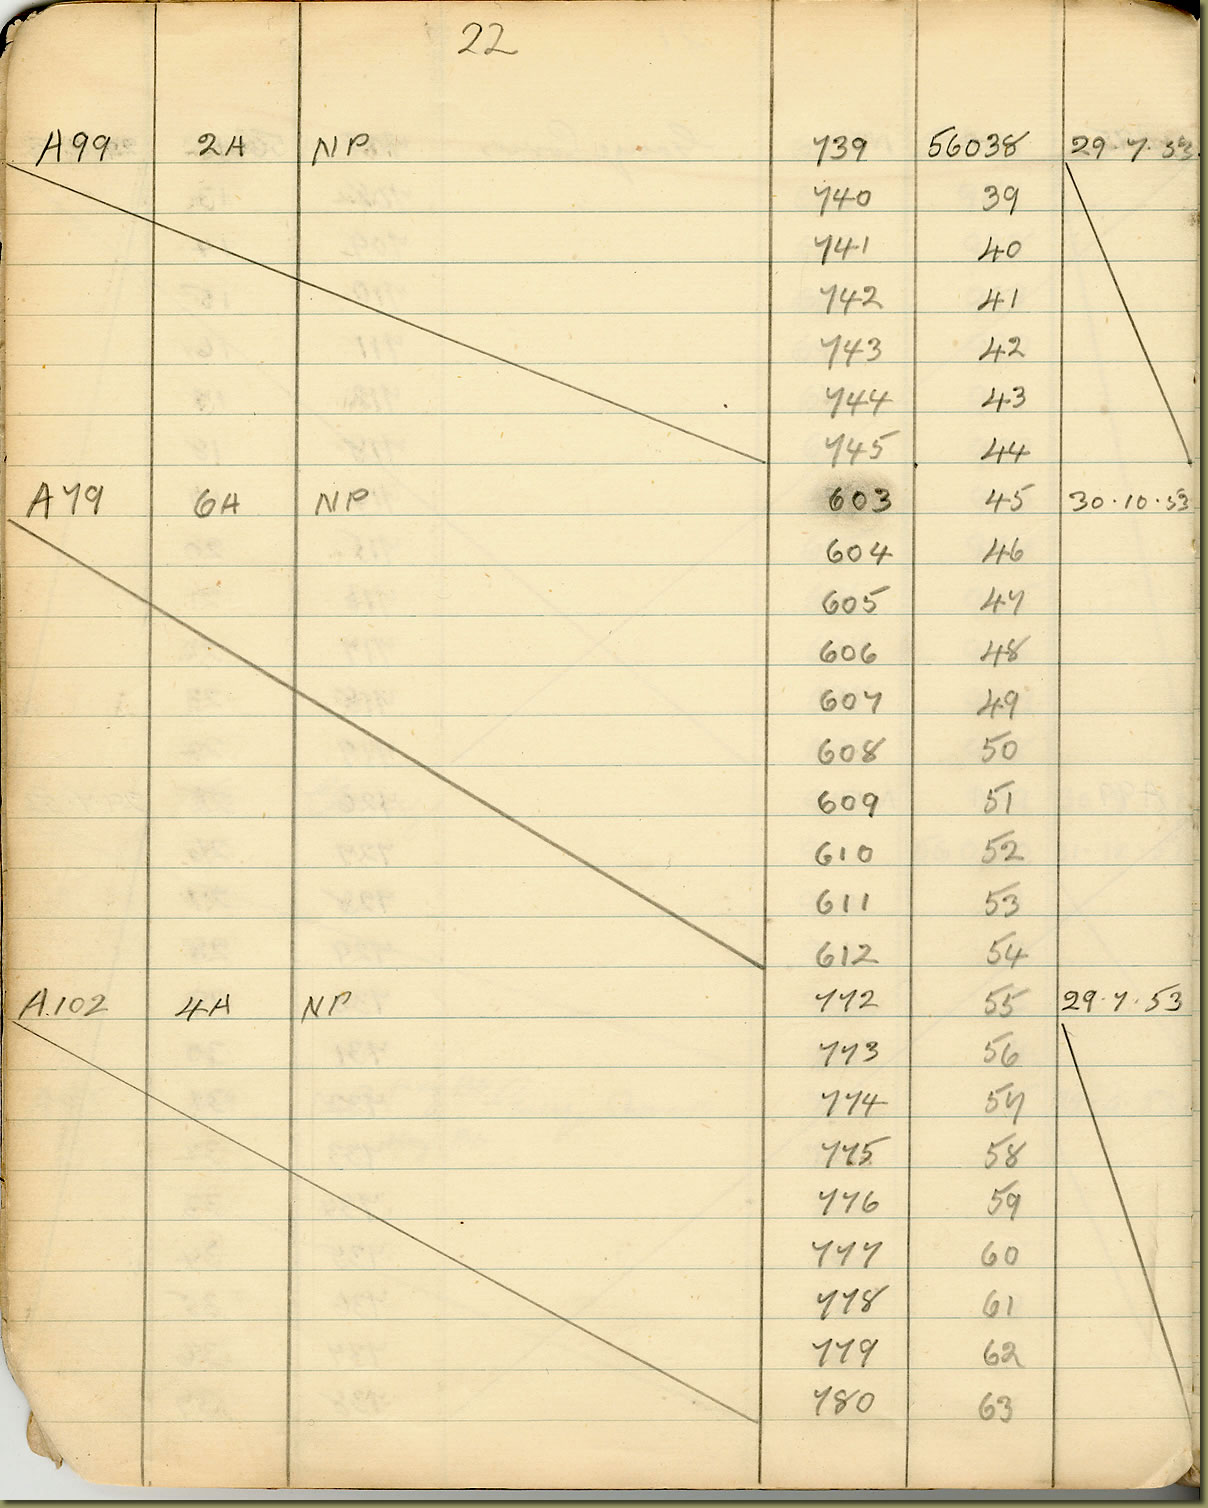 22
A99 2A NP 739 56038 29.7.53.
740 39
741 40
742 41
743 42
744 43
745 44
A79 6A NP 603 45 30.10.53
604 46
605 47
606 48
607 49
608 50
609 51
610 52
611 53
612 54
A.102 4A NP 772 55 29.7.53
773 56
774 57
775 58
776 59
777 60
778 61
779 62
780 63